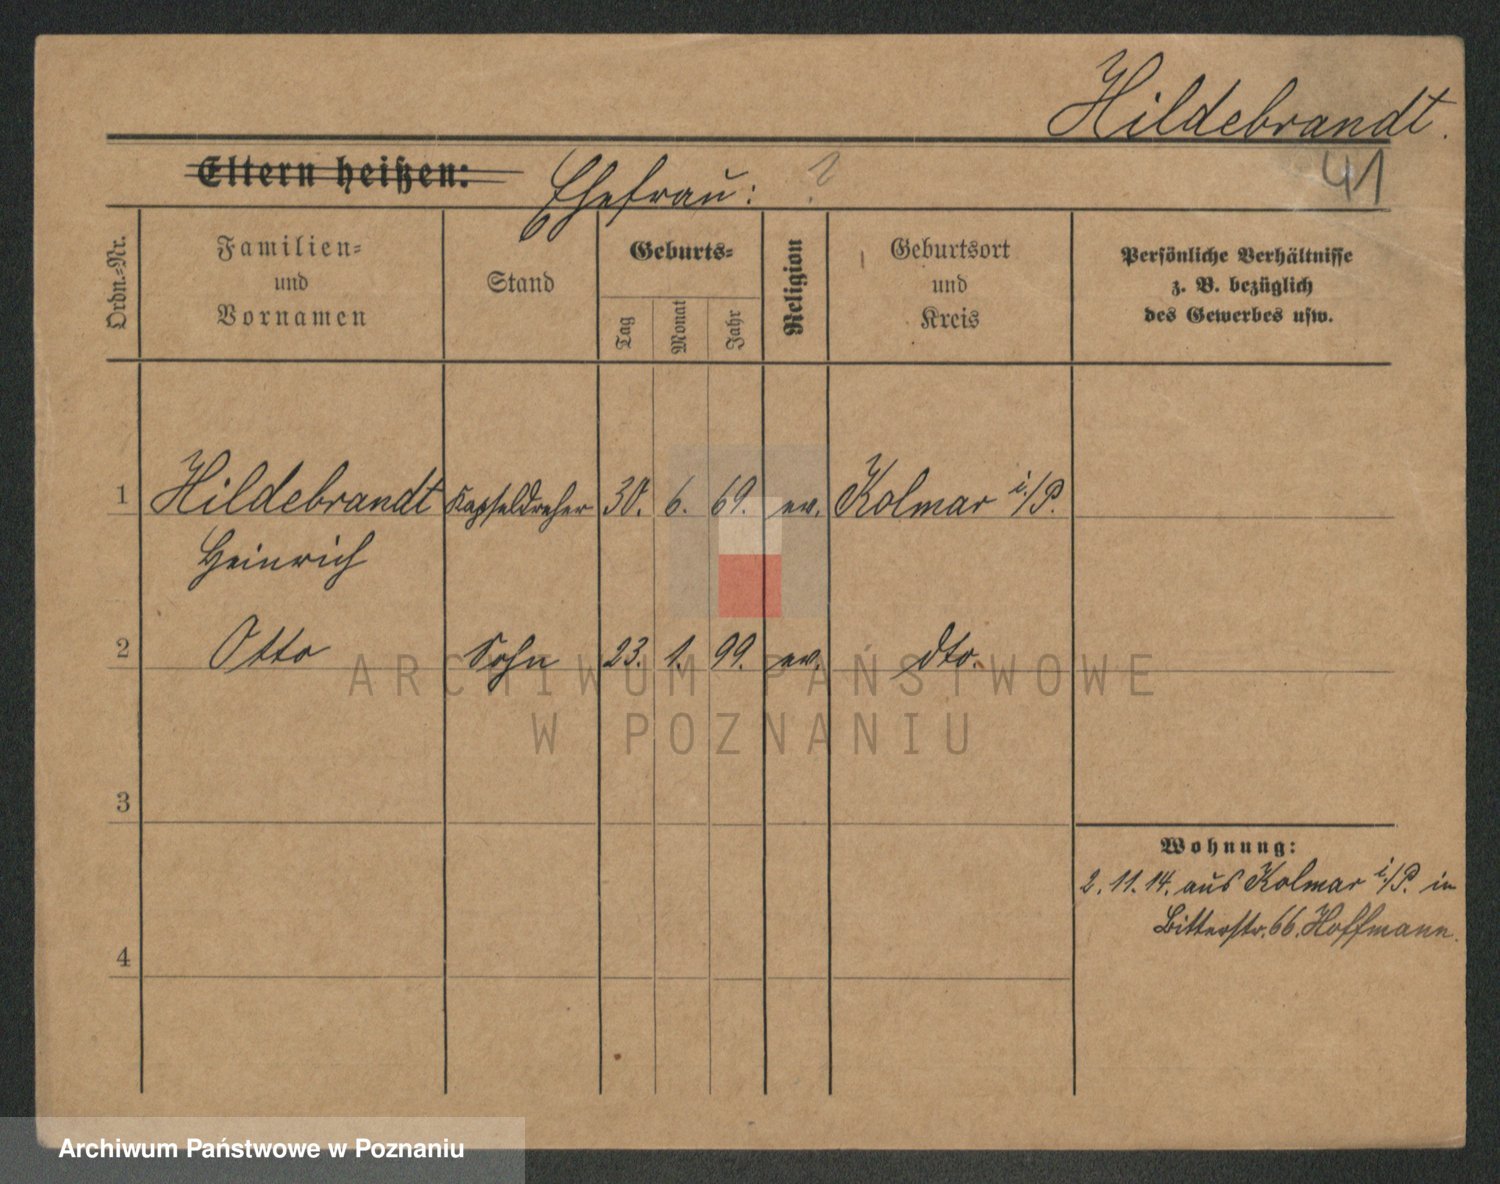 Hildebrandt.
41
Eltern heißen: Ehefrau: ?
Ordn.-Nr.
Familien-
und
Vornamen
Stand
Geburts-
Tag
Monat
Jahr
Religion
Geburtsort
und
Kreis
Persönliche Verhältnisse
z. B. bezüglich
des Gewerbes usw.
1 Hildebrandt Kapseldreher 30. 6. 69. ev. Kolmar i/P.
Heinrich
2 Otto Sohn 23. 1. 99. ev. dto.
ARCHIWUM PAŃSTWOWE
W POZNANIU
3
Wohnung:
2. 11. 14. aus Kolmar i/P. in
Bitterstr. 66. Hoffmann.
4
Archiwum Państwowe w Poznaniu